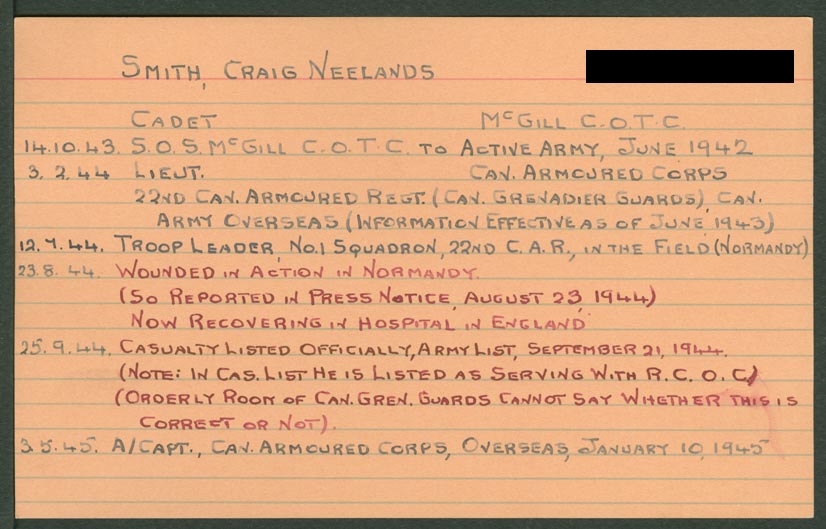 SMITH, CRAIG NEELANDS
CADET McGILL C.O.T.C.
14.10.43. S.O.S. McGILL C.O.T.C. TO ACTIVE ARMY, JUNE 1942
3.2.44 LIEUT. CAN. ARMOURED CORPS
22ND CAN. ARMOURED REGT. (CAN. GRENADIER GUARDS), CAN.
ARMY OVERSEAS (INFORMATION EFFECTIVE AS OF JUNE 1943)
12.7.44. TROOP LEADER, NO.1 SQUADRON, 22ND C.A.R., IN THE FIELD (NORMANDY)
23.8.44. WOUNDED IN ACTION IN NORMANDY.
(SO REPORTED IN PRESS NOTICE, AUGUST 23, 1944)
NOW RECOVERING IN HOSPITAL IN ENGLAND
25.9.44. CASUALTY LISTED OFFICIALLY, ARMY LIST, SEPTEMBER 21, 1944.
(NOTE: IN CAS. LIST HE IS LISTED AS SERVING WITH R.C.O.C.)
(ORDERLY ROOM OF CAN. GREN. GUARDS CANNOT SAY WHETHER THIS IS
CORRECT OR NOT).
3.5.45. A/CAPT., CAN. ARMOURED CORPS, OVERSEAS, JANUARY 10, 1945